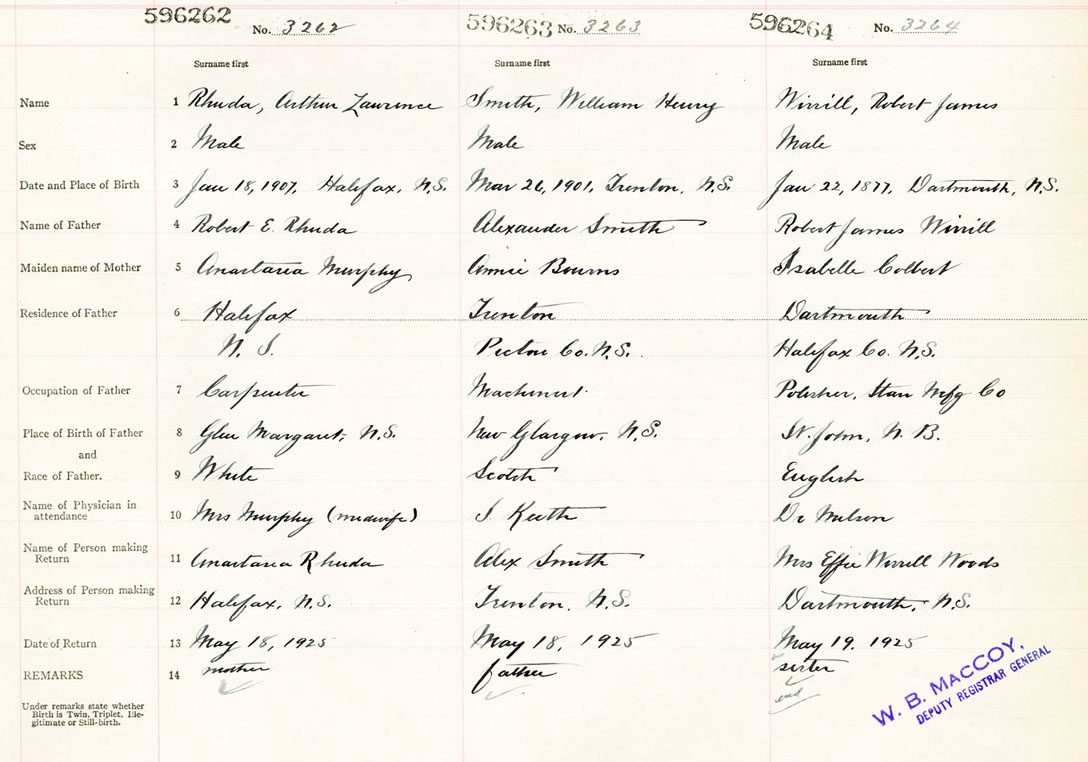 596262 No. 3262 596263 No. 3263 596264 No. 3264
Surname first Surname first Surname first
Name 1 Rhuda, Arthur Lawrence Smith, William Henry Wirrill, Robert James
Sex 2 Male Male Male
Date and Place of Birth 3 Jan 18, 1907, Halifax, N.S. Mar 26, 1901, Trenton, N.S. Jan 22, 1877, Dartmouth, N.S.
Name of Father 4 Robert E. Rhuda Alexander Smith Robert James Wirrill
Maiden name of Mother 5 Anastasia Murphy Annie Bourns Isabelle Colbert
Residence of Father 6 Halifax Trenton Dartmouth
N. S. Pictou Co. N.S. Halifax Co. N.S.
Occupation of Father 7 Carpenter Machinist Polisher, Starr Mfg Co
Place of Birth of Father 8 Glen Margaret, N.S. New Glasgow, N.S. St. John, N. B.
and
Race of Father. 9 White Scotch English
Name of Physician in
attendance 10 Mrs Murphy (midwife) Keith Dr
Name of Person making
Return 11 Anastasia Rhuda Alex Smith Mrs Effie Wirrell Woods
Address of Person making
Return 12 Halifax, N.S. Trenton, N.S. Dartmouth, N.S.
Date of Return 13 May 18, 1925 May 18, 1925 May 19. 1925
REMARKS 14 mother father sister
Under remarks state whether
Birth is Twin, Triplet, Ille-
gitimate or Still-birth.
W. B. MACCOY,
DEPUTY REGISTRAR GENERAL